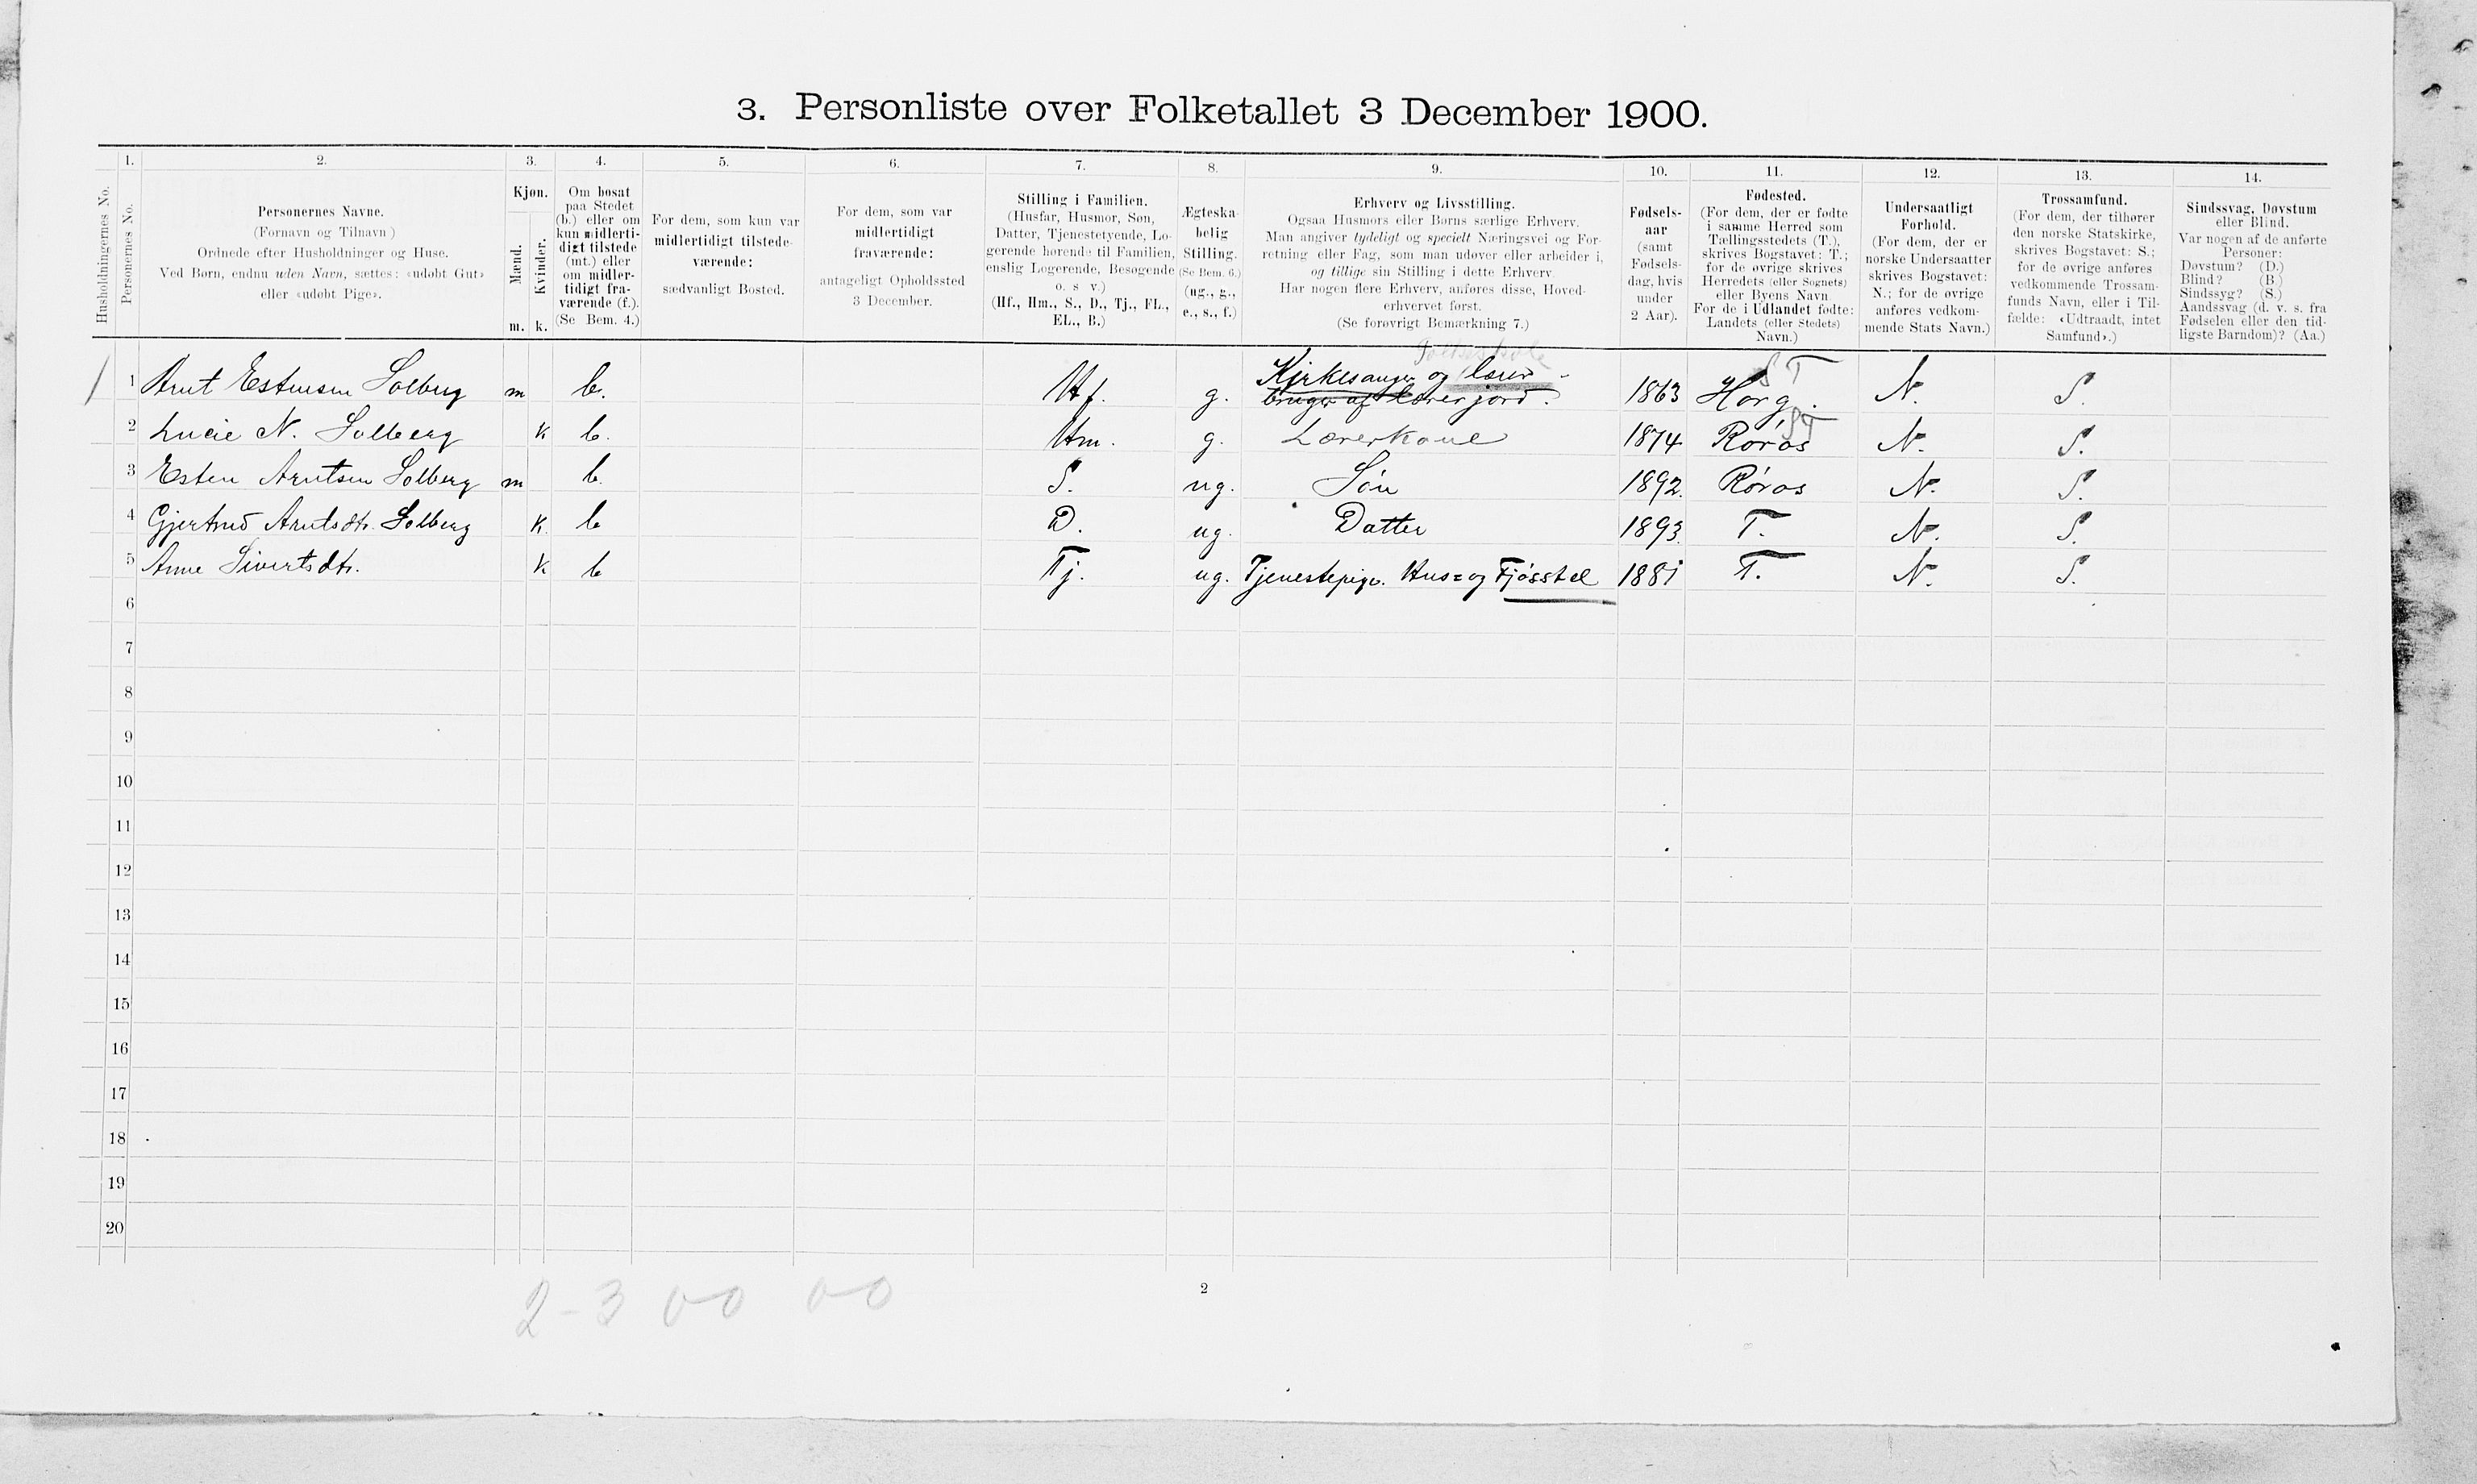 3. Personliste over Folketallet 3 December 1900.
1. 2. 3. 4. 5. 6. 7. 8. 9. 10. 11. 12. 13. 14.
Husholdningernes No.
Personernes No.
Personernes Navne.
(Fornavn og Tilnavn)
Ordnede efter Husholdninger og Huse.
Ved Børn, endnu uden Navn, sættes: «udøbt Gut»
eller «udøbt Pige».
Kjøn.
Mænd.
Kvinder.
m. k.
Om bosat
paa Stedet
(b.) eller om
kun midlerti-
digt tilstede
(mt.) eller
om midler-
tidigt fra-
værende (f.).
(Se Bem. 4.)
For dem, som kun var
midlertidigt tilstede-
værende:
sædvanligt Bosted.
For dem, som var
midlertidigt
fraværende:
antageligt Opholdssted
3 December.
Stilling i Familien.
(Husfar, Husmor, Søn,
Datter, Tjenestetyende, Lo-
gerende hørende til Familien,
enslig Logerende, Besøgende
o. s v.)
(Hf., Hm., S., D., Tj., FL.,
EL., B.)
Ægteska-
belig
Stilling.
(Se Bem. 6.)
(ug., g.,
e., s., f.)
Erhverv og Livsstilling.
Ogsaa Husmors eller Børns særlige Erhverv.
Man angiver tydeligt og specielt Næringsvei og For-
retning eller Fag, som man udøver eller arbeider i,
og tillige sin Stilling i dette Erhverv.
Har nogen flere Erhverv, anføres disse, Hoved-
erhvervet først.
(Se forøvrigt Bemærkning 7.)
Fødsels-
aar
(samt
Fødsels-
dag, hvis
under
2 Aar).
Fødested.
(For dem, der er fødte
i samme Herred som
Tællingsstedets (T.),
skrives Bogstavet: T.;
for de øvrige skrives
Herredets (eller Sognets)
eller Byens Navn.
For de i Udlandet fødte:
Landets (eller Stedets)
Navn.)
Undersaatligt
Forhold.
(For dem, der er
norske Undersaatter
skrives Bogstavet:
N.; for de øvrige
anføres vedkom-
mende Stats Navn.)
Trossamfund.
(For dem, der tilhører
den norske Statskirke,
skrives Bogstavet: S.;
for de øvrige anføres
vedkommende Trossam-
funds Navn, eller i Til-
fælde: «Udtraadt, intet
Samfund».)
Sindssvag, Døvstum
eller Blind.
Var nogen af de anførte
Personer:
Døvstum? (D.)
Blind? (B.)
Sindssyg? (S.)
Aandssvag (d. v. s. fra
Fødselen eller den tid-
ligste Barndom)? (Aa.)
Folkeskole
S T
1 Arnt Estensen Solberg m b. Hf. g. Kirkesanger og lærer - 1863 Horg. N. S.
bruger af lærerjord.
ST
2 Lucie N. Solberg k b. Hm. g. Lærerkone 1874 Røros N. S.
3 Esten Arntsen Solberg m b. S. ug. Søn 1892. Røros N. S.
4 Gjertrud Arntsdtr. Solberg k. b D. ug. Datter 1893. T. N. S.
5 Anne Sivertsdtr. k b Tj. ug. Tjenestepige. Hus= og Fjøsstel 1881 T. N. S.
6
7
8
9
10
11
12
13
14
15
16
17
18
19
20
2-3 00 00
2